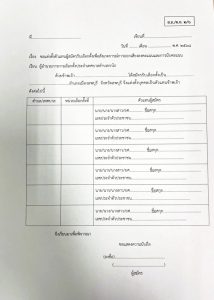 ที่ เขียนที่
วันที่ เดือน พ.ศ. ๒๕๖๘
เรื่อง ขอแต่งตั้งตัวแทนผู้สมัครรับเลือกตั้งเพื่อสังเกตการณ์การออกเสียงลงคะแนนและการนับคะแนน
เรียน ผู้อำนวยการการเลือกตั้งประจำ
ด้วยข้าพเจ้า ได้สมัครรับเลือกตั้งเป็น
จังหวัดลพบุรี จึงแต่งตั้งบุคคลเป็นตัวแทนข้าพเจ้า
ดังต่อไปนี้
หน่วยเลือกตั้งที่ ตัวแทนผู้สมัคร
นาย/นาง/นางสาว/ยศ ชื่อสกุล
เลขประจำตัวประชาชน
นาย/นาง/นางสาว/ยศ ชื่อสกุล
เลขประจำตัวประชาชน
นาย/นาง/นางสาว/ยศ ชื่อสกุล
เลขประจำตัวประชาชน
นาย/นาง/นางสาว/ยศ ชื่อสกุล
เลขประจำตัวประชาชน
นาย/นาง/นางสาว/ยศ ชื่อสกุล
เลขประจำตัวประชาชน
นาย/นาง/นางสาว/ยศ ชื่อสกุล
เลขประจำตัวประชาชน
จึงเรียนมาเพื่อพิจารณา
ขอแสดงความนับถือ
(ลงชื่อ)
( )
ผู้สมัคร